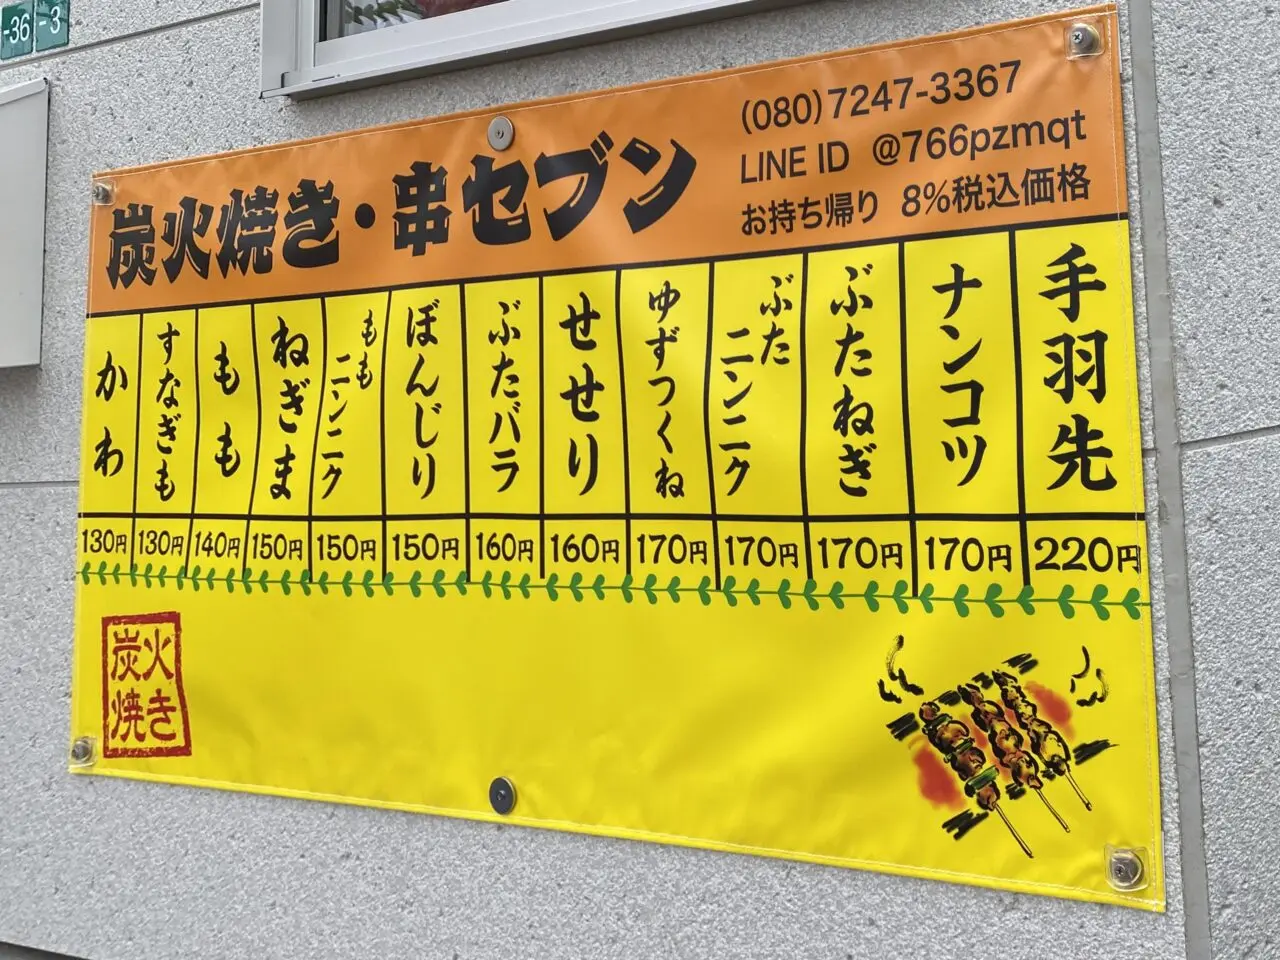 -36
-3
炭火焼き・串セブン
(080)7247-3367
LINE ID @766pzmqt
お持ち帰り 8%税込価格
かわ
130円
すなぎも
130円
もも
140円
ねぎま
150円
もも
ニンニク
150円
ぼんじり
150円
ぶたバラ
160円
せせり
160円
ゆずつくね
170円
ぶた
ニンニク
170円
ぶたねぎ
170円
ナンコツ
170円
手羽先
220円
炭火
焼き